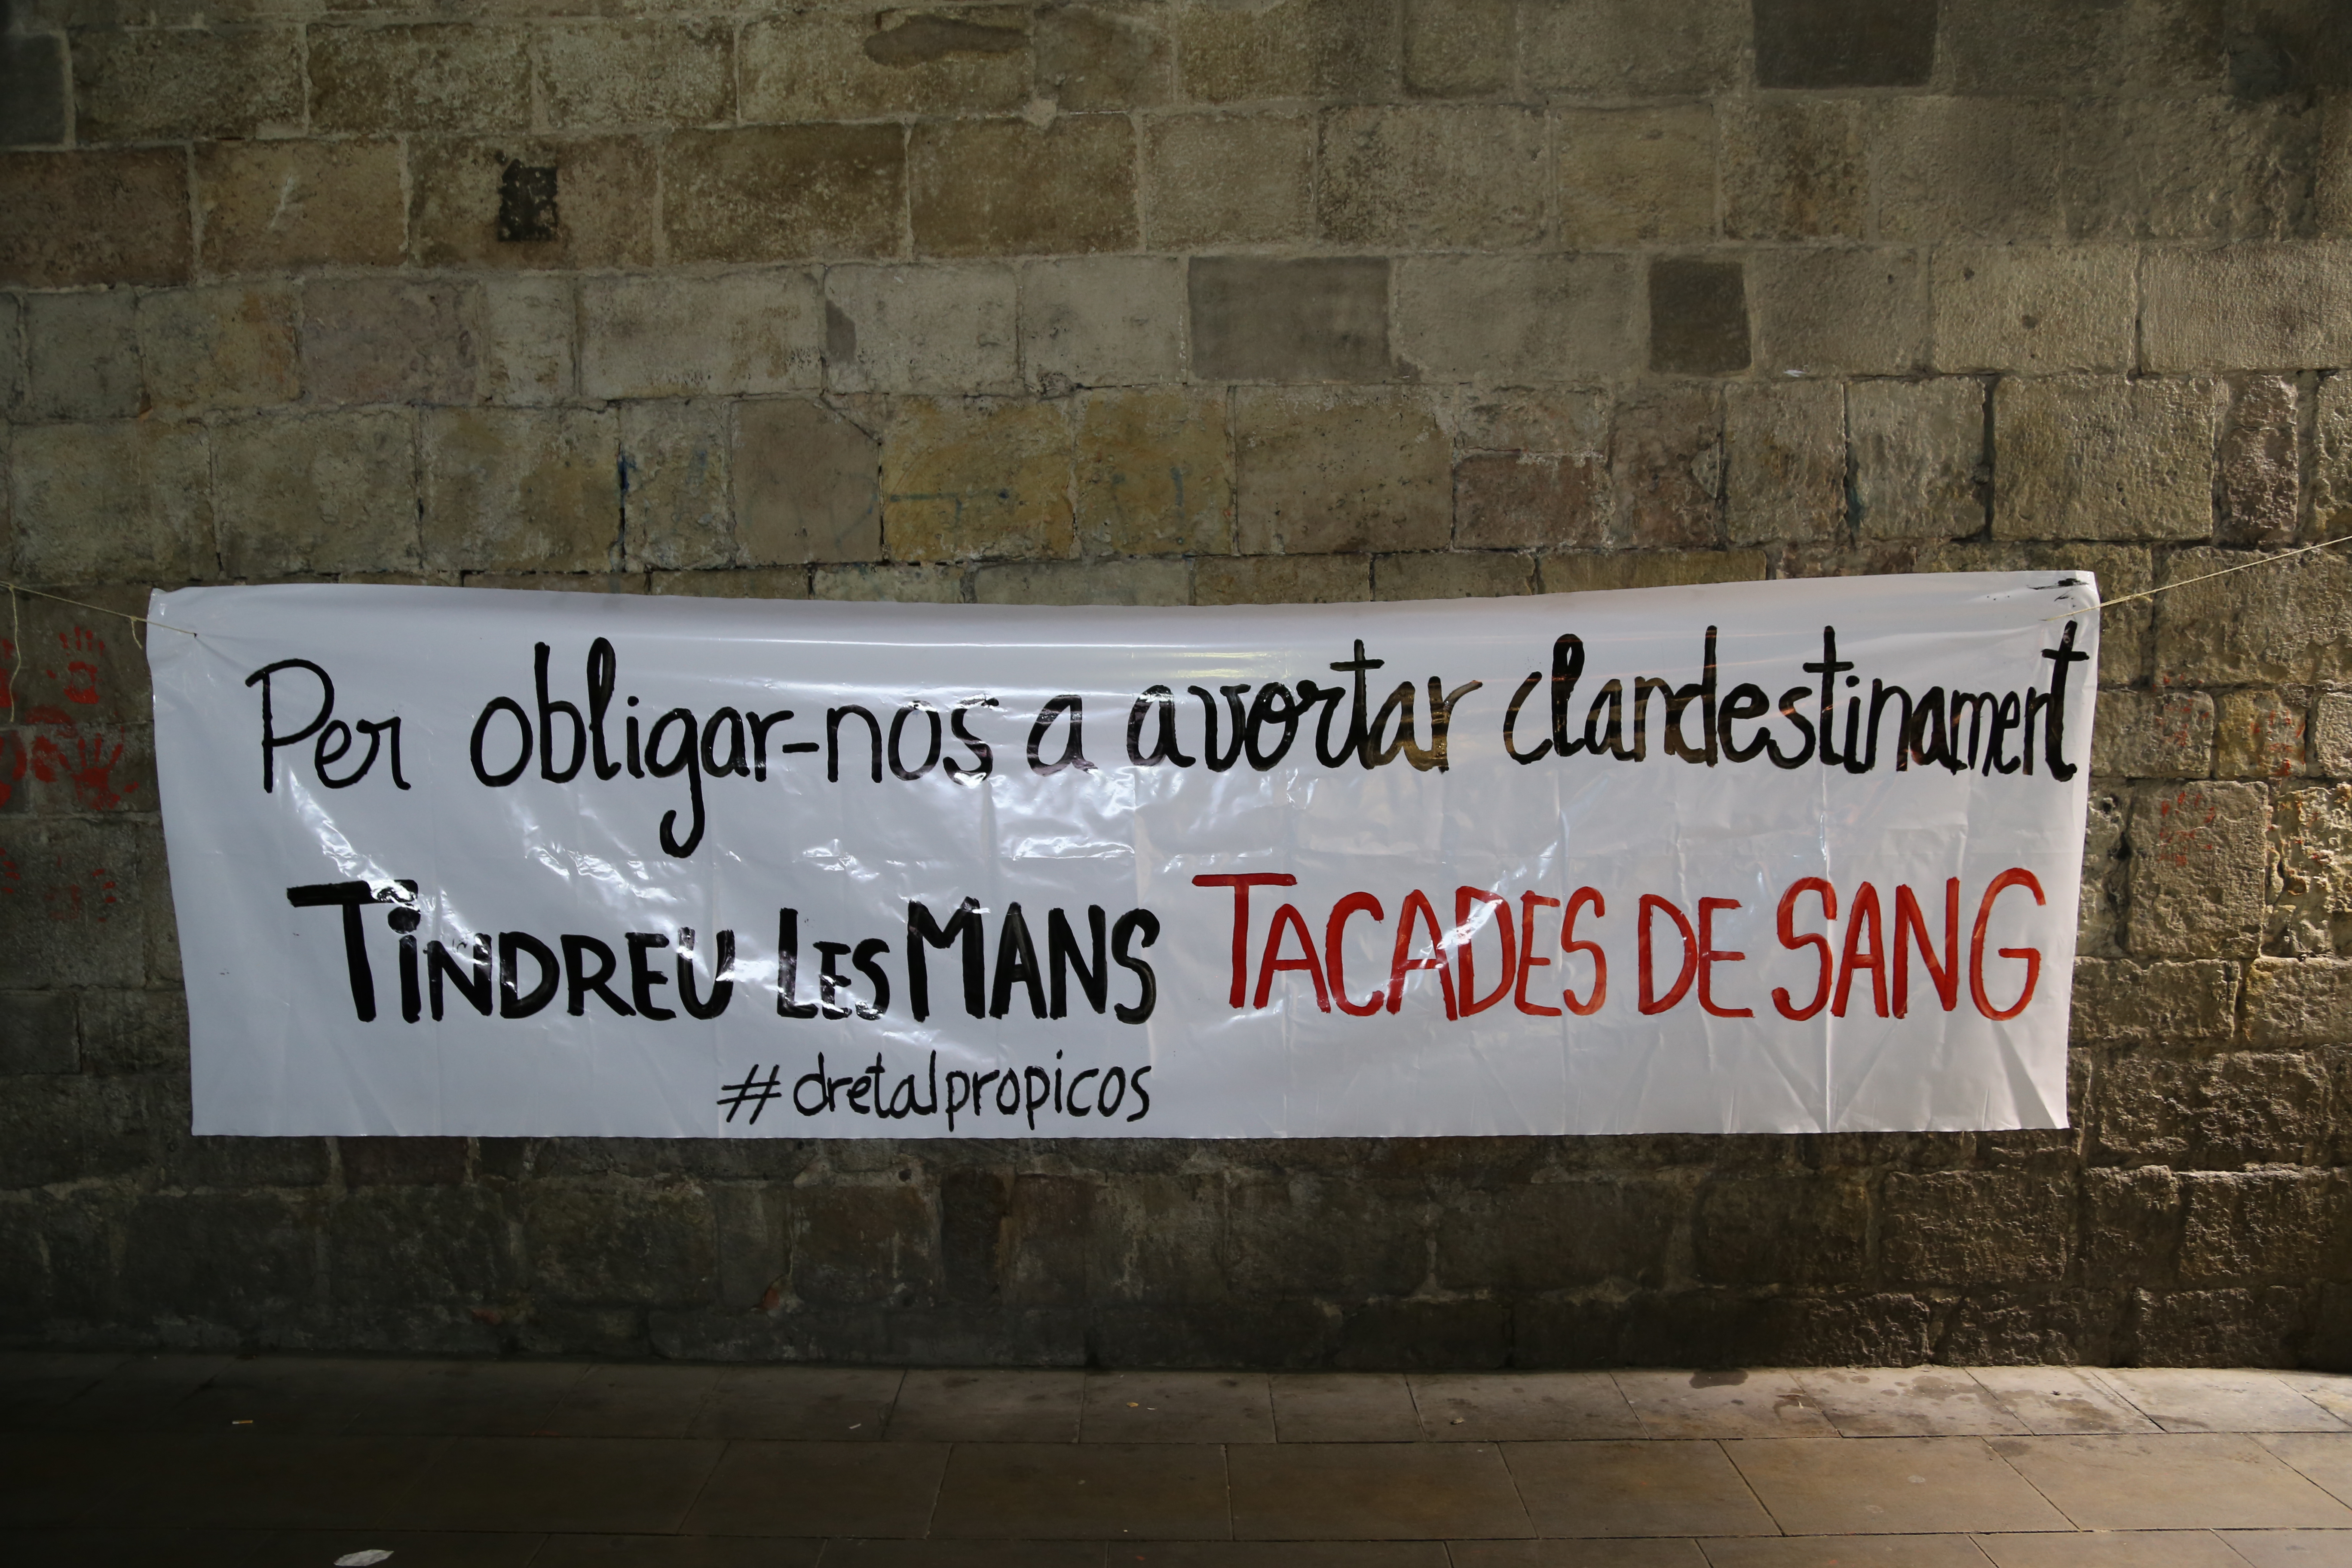 Per obligar-nos a avortar clandestinament
TiNDREU LES MANS TACADES DE SANG
#dretalpropicos